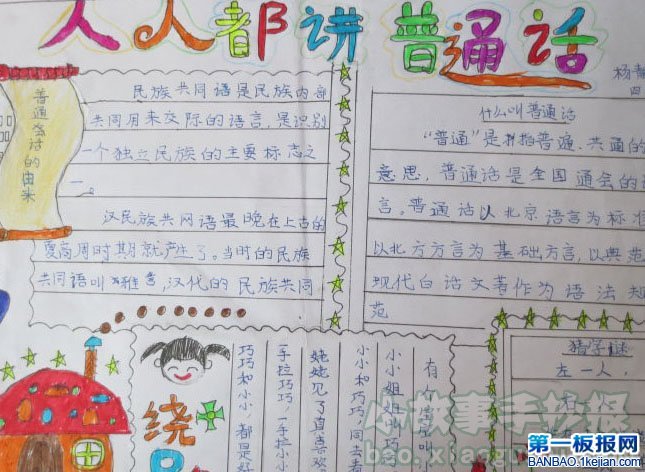 人人都讲普通话
杨
四
普通话的由来
民族共同语是民族内部
共同用来交际的语言，是识别
一个独立民族的主要标志之
一。
汉民族共同语最晚在上古的
夏商周时期就产生了。当时的民族
共同语叫雅言，汉代的民族共同
什么叫普通话
“普通”是指普遍、共通的
意思，普通话是全国通会的
言。普通话以北京语言为标准
以北方方言为基础方言，以典范
现代白话文著作为语法规
范
绕
巧巧和小小，都是
一手拉巧巧，一手拉小
姥姥见了真喜欢
小小和巧巧，同去看
小小姐姐叫巧
有个
猜字谜
左一人，
小故事手抄报
bao.xiaogushi
第一板报网
BANBAO.1kejian.com